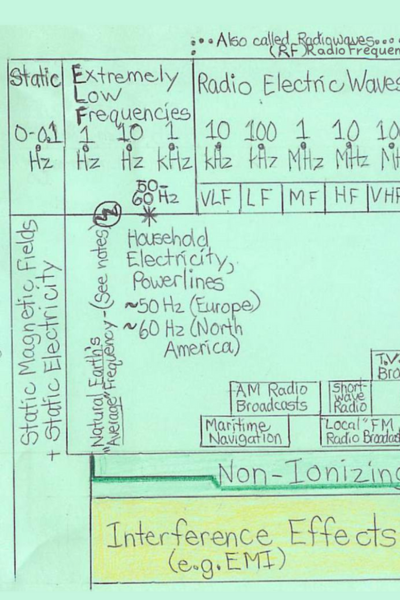 Also called Radiowaves....
(RF) Radio Frequen
Static
Extremely
Low
Frequencies
Radio Electric Waves
0-0.1
Hz
1
Hz
10
Hz
1
kHz
10
kHz
100
kHz
1
MHz
10
MHz
10
50-
60 Hz
VLF
LF
MF
HF
VHF
Static Magnetic Fields
+ Static Electricity
Natural Earth's
"Average" Frequency - (See notes)
Household
Electricity,
Powerlines
~50 Hz (Europe)
~60 Hz (North
America)
T.V.
Bro
AM Radio
Broadcasts
Short-
wave
Radio
Maritime
Navigation
"Local" FM
Radio Broadcas
Non-Ionizing
Interference Effects
(e.g. EMI)